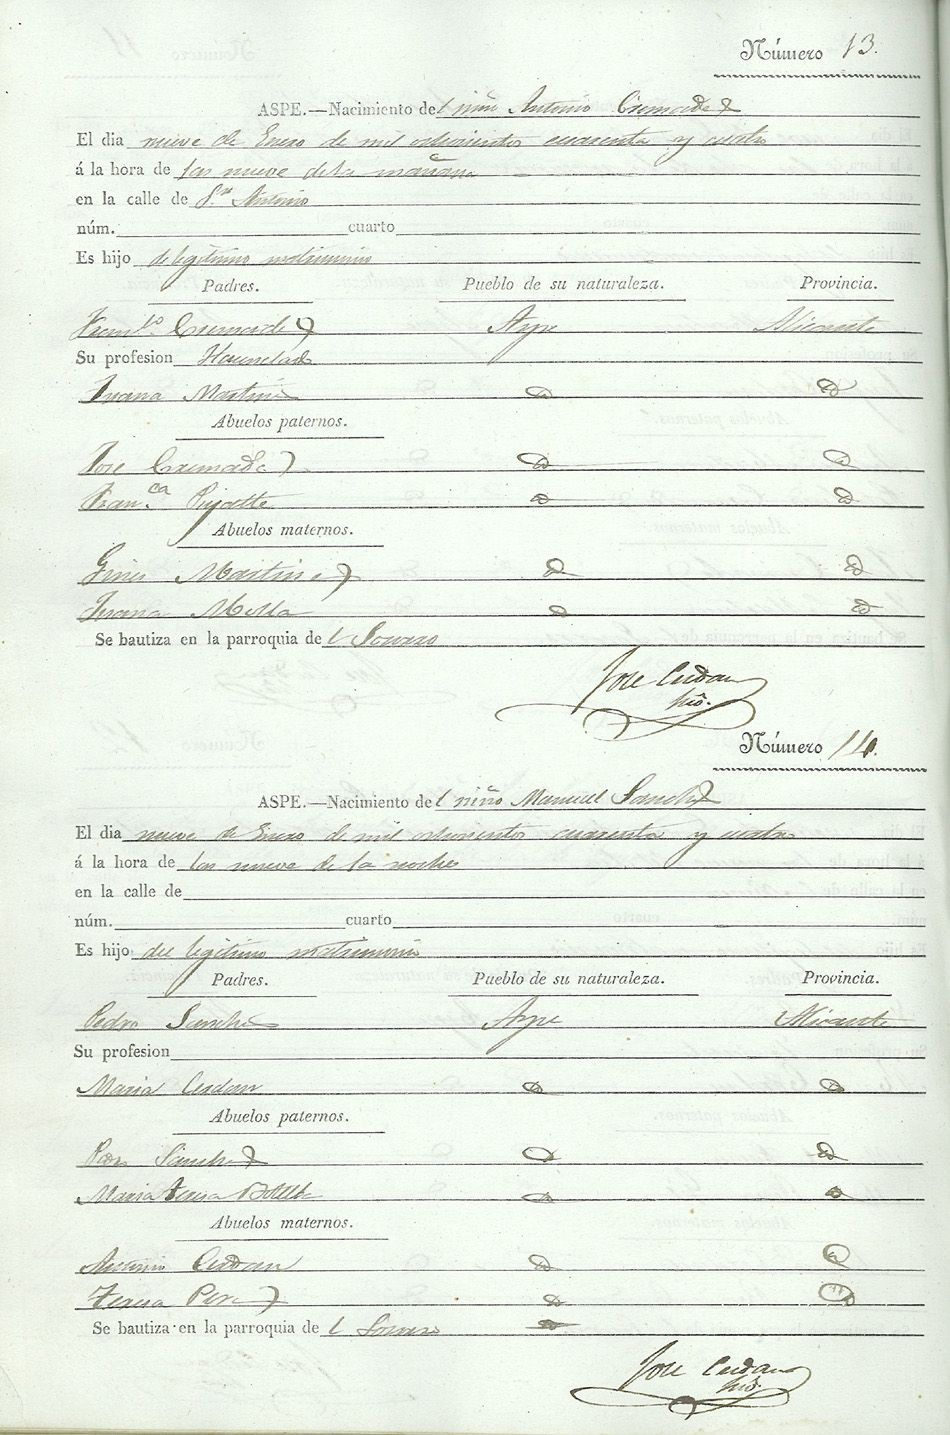 Número 13.
ASPE.—Nacimiento del niño Antonio Cremades
El dia nueve de Enero de mil ochocientos cuarenta y cuatro
á la hora de las nueve de la mañana
en la calle de Sn. Antonio
núm. cuarto
Es hijo de legitimo matrimonio
Padres. Pueblo de su naturaleza. Provincia.
Franco Cremades Aspe Alicante
Su profesion
Juana Martinez id id
Abuelos paternos.
Jose Cremades id id
Franca id id
Abuelos maternos.
Gines Martinez id id
Juana Molla id id
Se bautiza en la parroquia del Socorro
Jose Cerdan
Número 14.
ASPE.—Nacimiento del niño Manuel Sanchez
El dia nueve de Enero de mil ochocientos cuarenta y cuatro
á la hora de las nueve de la noche
en la calle de
núm. cuarto
Es hijo del legitimo matrimonio
Padres. Pueblo de su naturaleza. Provincia.
Pedro Sanchez Aspe Alicante
Su profesion
Maria Cerdan id id
Abuelos paternos.
Sanchez id id
Maria Teresa Botella id id
Abuelos maternos.
Antonio Cerdan id id
Teresa Perez id id
Se bautiza en la parroquia del Socorro
Jose Cerdan